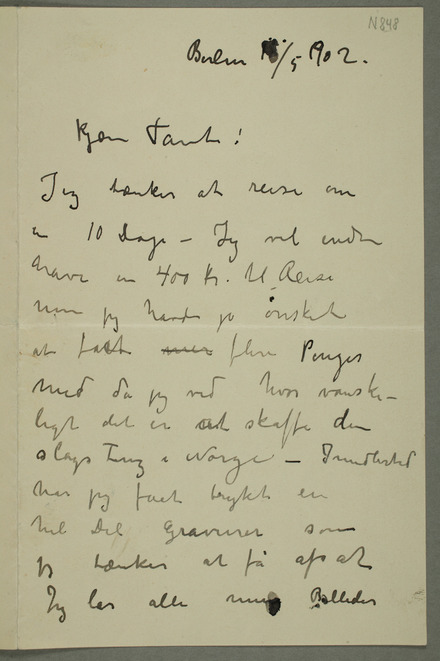 N 848
Berlin /5 1902.
Kjære Tante!
Jeg tænker at reise om
en 10 Dage – Jeg vil endnu
have en 400 kr. til Reise
men jeg havde jo ønsket
at faat mer flere Penges
med da jeg ved hvor vanske-
ligt det er at skaffe den
slags Ting i Norge – Imidlertid
har jeg faet trykt en
hel Del Gravurer som
jeg tænker at få afsat
Jeg lar alle mine Billeder